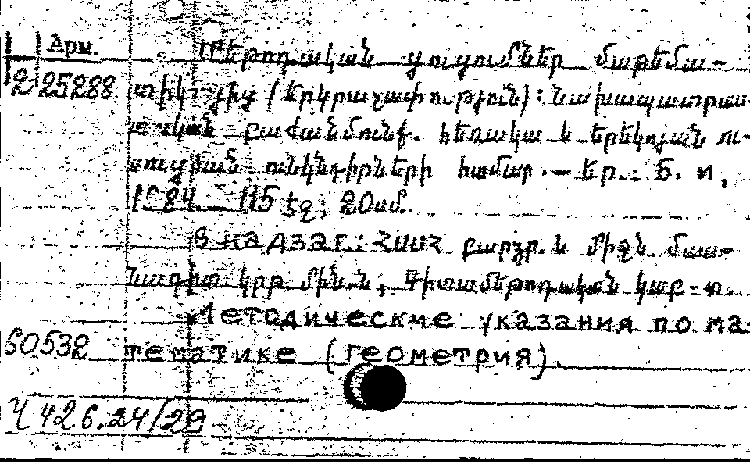 Арм.
Մեթոդական ցուցումներ մաթեմա-
2-25288 տիկայից (Երկրաչափություն): Նախապատրաս-
տական բաժանմունք. հեռակա և երեկոյան ու-
սուցման ունկնդիրների համար. — Եր.: Б. и,
1984. — 115 էջ, 20սմ.
В надзаг.: ՀՍՍՀ բարձր. և միջն. մաս-
նագիտ. կրթ. մին.ն, Գիտամեթոդական կաբ-տ.
Методические указания по ма-
50532 тематике (геометрия).
Ч 426.24/29